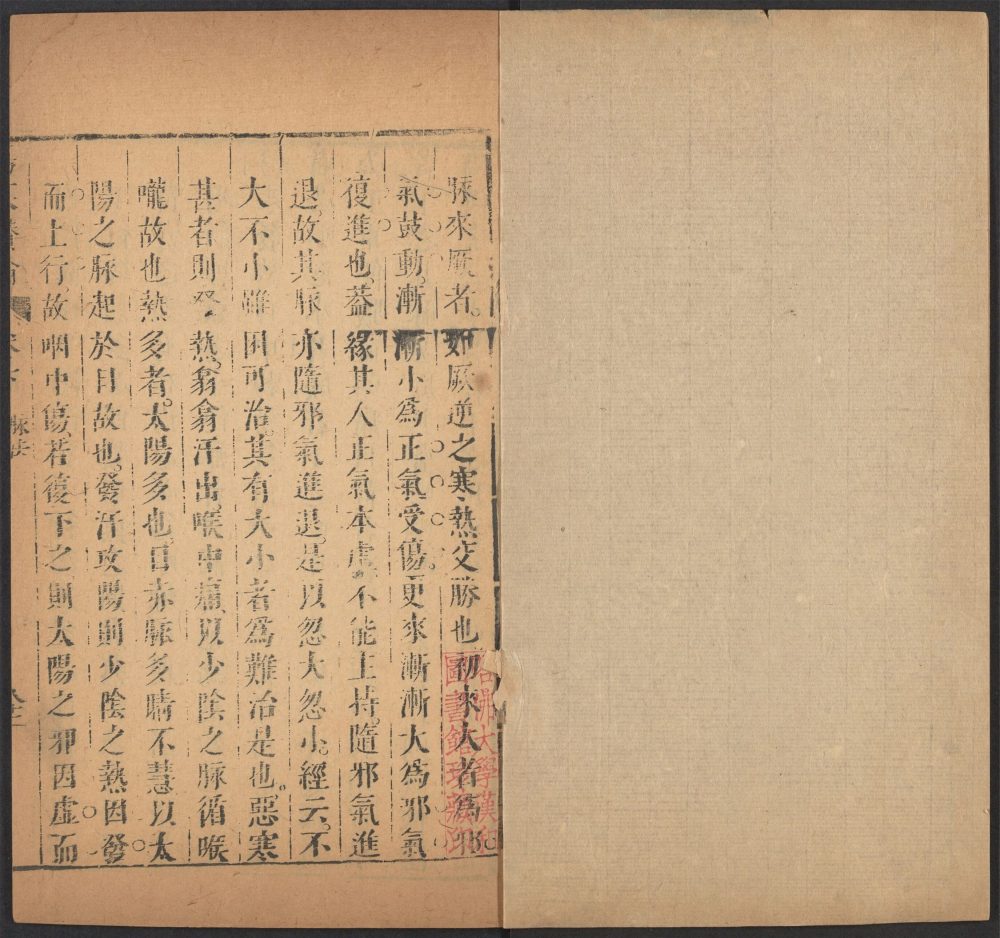 脉來厥者。如厥逆之寒熱交勝也初來大者為邪
氣鼓動。漸漸小為正氣受傷。更來漸漸大為邪氣
復進也。葢緣其人正氣本虛不能主持。隨邪氣進
退。故其脉亦隨邪氣進退。是以忽大忽小。經云。不
大不小雖困可治。其有大小者為難治是也。惡寒
甚者則熱。翕翕汗出。喉中痛以少陰之脉循喉
嚨故也熱多者。太陽多也。目赤脉多睛不慧以太
陽之脉起於目故也。發汗攻陽則少陰之熱因發
而上行故咽中傷。若復下之則太陽之邪因虛而
脉法
哈佛大學漢和
圖書館珍藏印